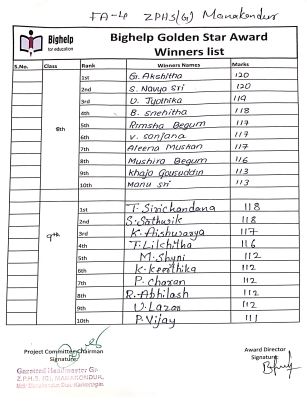 FA-4 ZPHS(G) Manakondur
Bighelp
for education
Bighelp Golden Star Award
Winners list
S.No. Class Rank Winners Names Marks
8th
1st G. Akshitha 120
2nd S. Navya Sri 120
3rd U. Jyothika 119
4th B. Snehitha 118
5th Rimsha Begum 117
6th V. Sanjana 117
7th Aleena Muskan 117
8th Mushira Begum 116
9th Khaja Gousuddin 113
10th Manu Sri 113
9th
1st T. Sirichandana 118
2nd S. Sathvik 118
3rd K. Aishwarya 117
4th T. Likhitha 116
5th M. Shyni 112
6th K. Keerthika 112
7th P. Charan 112
8th R. Abhilash 112
9th U. Lazar 112
10th P. Vijay 111
Project Committee Chairman
Signature
Award Director
Signature
Gazetted Headmaster Gr
Z.P.H.S. (G), MANAKONDUR,